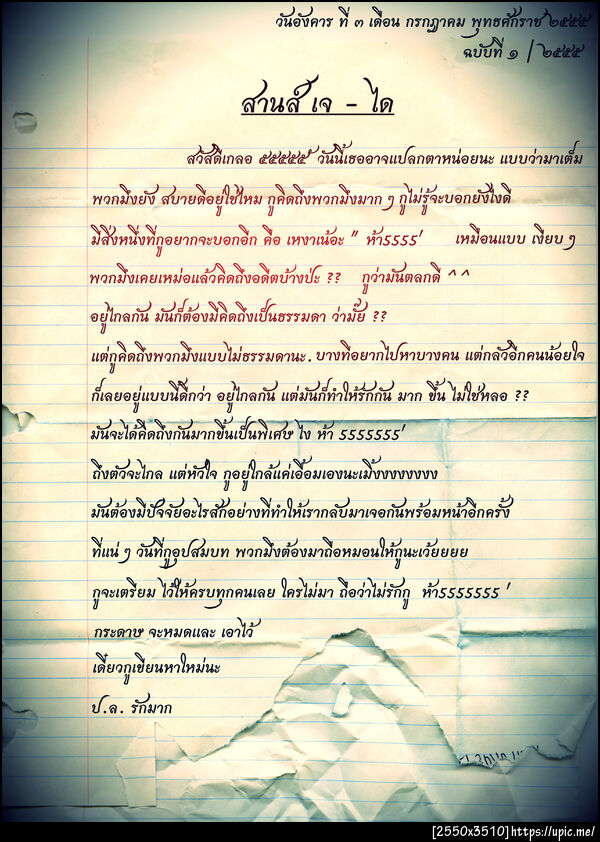 วันอังคาร ที่ ๓ เดือน กรกฎาคม พุทธศักราช ๒๕๕๕
ฉบับที่ ๑ / ๒๕๕๕
สานส์ เจ - ได
สวัสดีเกลอ ๕๕๕๕๕ วันนี้เธออาจแปลกตาหน่อยนะ แบบว่ามาเต็ม
พวกมึงยัง สบายดีอยู่ใช่ไหม กูคิดถึงพวกมึงมาก ๆ กูไม่รู้จะบอกยังไงดี
มีสิ่งหนึ่งที่กูอยากจะบอกอีก คือ เหงาเน้อะ " ห้า5555' เหมือนแบบ เงียบ ๆ
พวกมึงเคยเหม่อแล้วคิดถึงอดีตบ้างป่ะ ?? กูว่ามันตลกดี ^ ^
อยู่ไกลกัน มันก็ต้องมีคิดถึงเป็นธรรมดา ว่ามั๊ย ??
แต่กูคิดถึงพวกมึงแบบไม่ธรรมดานะ. บางทีอยากไปหาบางคน แต่กลัวอีกคนน้อยใจ
ก็เลยอยู่แบบนี้ดีกว่า อยู่ไกลกัน แต่มันก็ทำให้รักกัน มาก ขึ้น ไม่ใช่หลอ ??
มันจะได้คิดถึงกันมากขึ้นเป็นพิเศษ ไง ห้า 5555555'
ถึงตัวจะไกล แต่หัวใจ กูอยู่ใกล้แค่เอื้อมเองนะเมิ้งงงงงงงง
มันต้องมีปัจจัยอะไรสักอย่างที่ทำให้เรากลับมาเจอกันพร้อมหน้าอีกครั้ง
ที่แน่ ๆ วันที่กูอุปสมบท พวกมึงต้องมาถือหมอนให้กูนะเว้ยยยย
กูจะเตรียม ไว้ให้ครบทุกคนเลย ใครไม่มา ถือว่าไม่รักกู ห้า5555555 '
กระดาษ จะหมดและ เอาไว้
เดี๋ยวกูเขียนหาใหม่นะ
ป.ล. รักมาก
[2550x3510]https://upic.me/